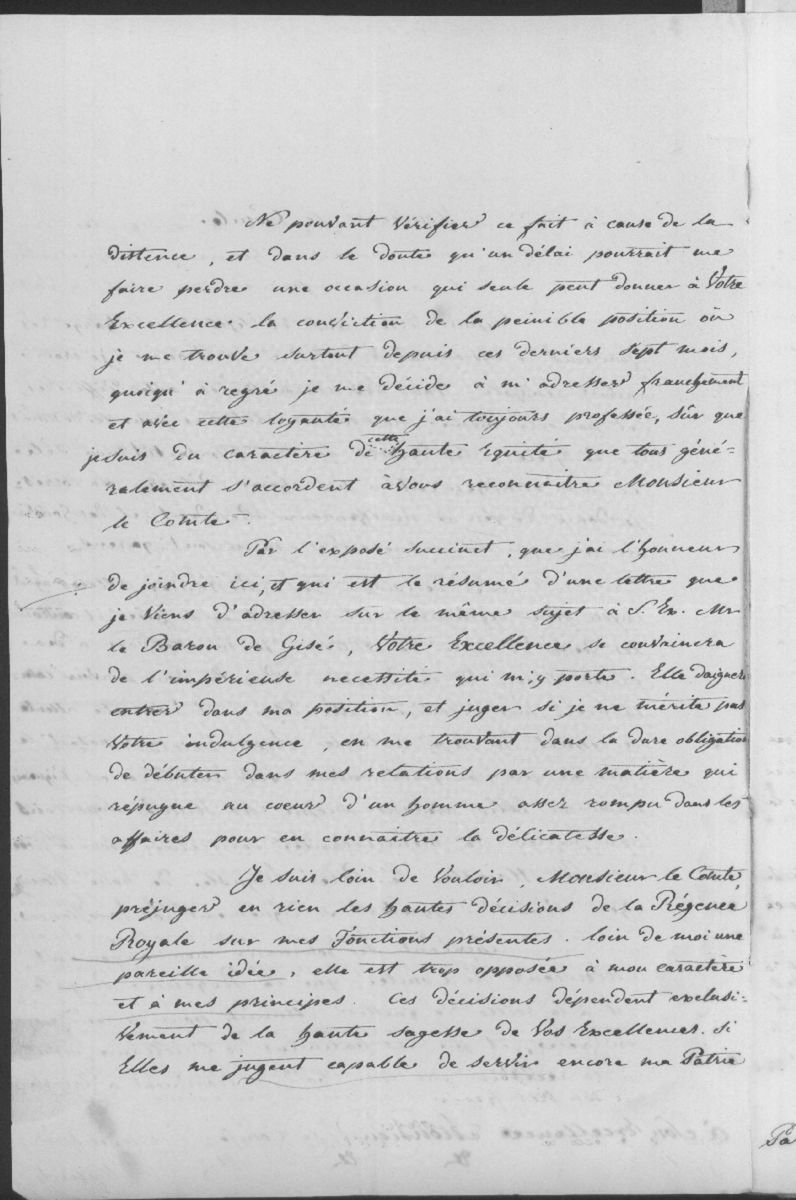 Ne pouvant vérifier ce fait à cause de la
distence, et dans le doute qu'un délai pourrait me
faire perdre une occasion qui seule peut donner à Votre
Excellence la conviction de la peinible position où
je me trouve surtout depuis ces derniers sept mois,
quoiqu' à regré je me décide à m'adresser franchement
et avec cette loyauté que j'ai toujours professée, sûr que
je suis du caractère de cette haute équité que tous géné-
ralement s'accordent à vous reconnaitre Monsieur
le Comte.
Par l'exposé succinct, que j'ai l'honneur
de joindre ici, et qui est le résumé d'une lettre que
je viens d'adresser sur le même sujet à S. Ex. Mr
le Baron de Gisé, Votre Excellence se convaincra
de l'impérieuse necessité qui m'y porte. Elle daignera
entrer dans ma position, et juger si je ne mérite pas
votre indulgence, en me trouvant dans la dure obligation
de débuter dans mes relations par une matière qui
répugne au coeur d'un homme assez rompu dans les
affaires pour en connaitre la délicatesse.
Je suis loin de vouloir, Monsieur le Comte,
préjuger en rien les hautes décisions de la Régence
Royale sur mes fonctions présentes. loin de moi une
pareille idée, elle est trop opposée à mon caractère
et à mes principes. Ces décisions dépendent exclusi-
vement de la haute sagesse de Vos Excellences. si
Elles me jugent capable de servir encore ma Patrie
Pa